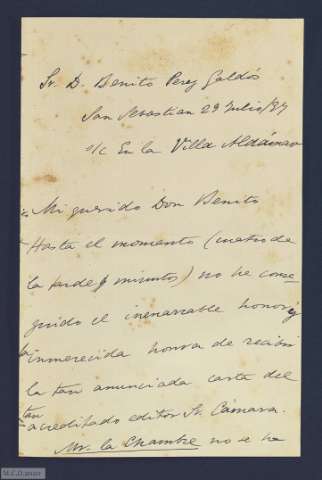 Sr. D. Benito Perez Galdós
San Sebastian 29 Julio/87
s/c En la Villa Aldámar
Mi querido Don Benito
Hasta el momento (cuatro de
la tarde y minutos) no he conse-
guido el inenarrable honor y
la inmerecida honra de recibir
la tan anunciada carta del
tan acreditado editor Sr. Cámara.
Mr. la Chambre no se ha
M.C.D. 2022